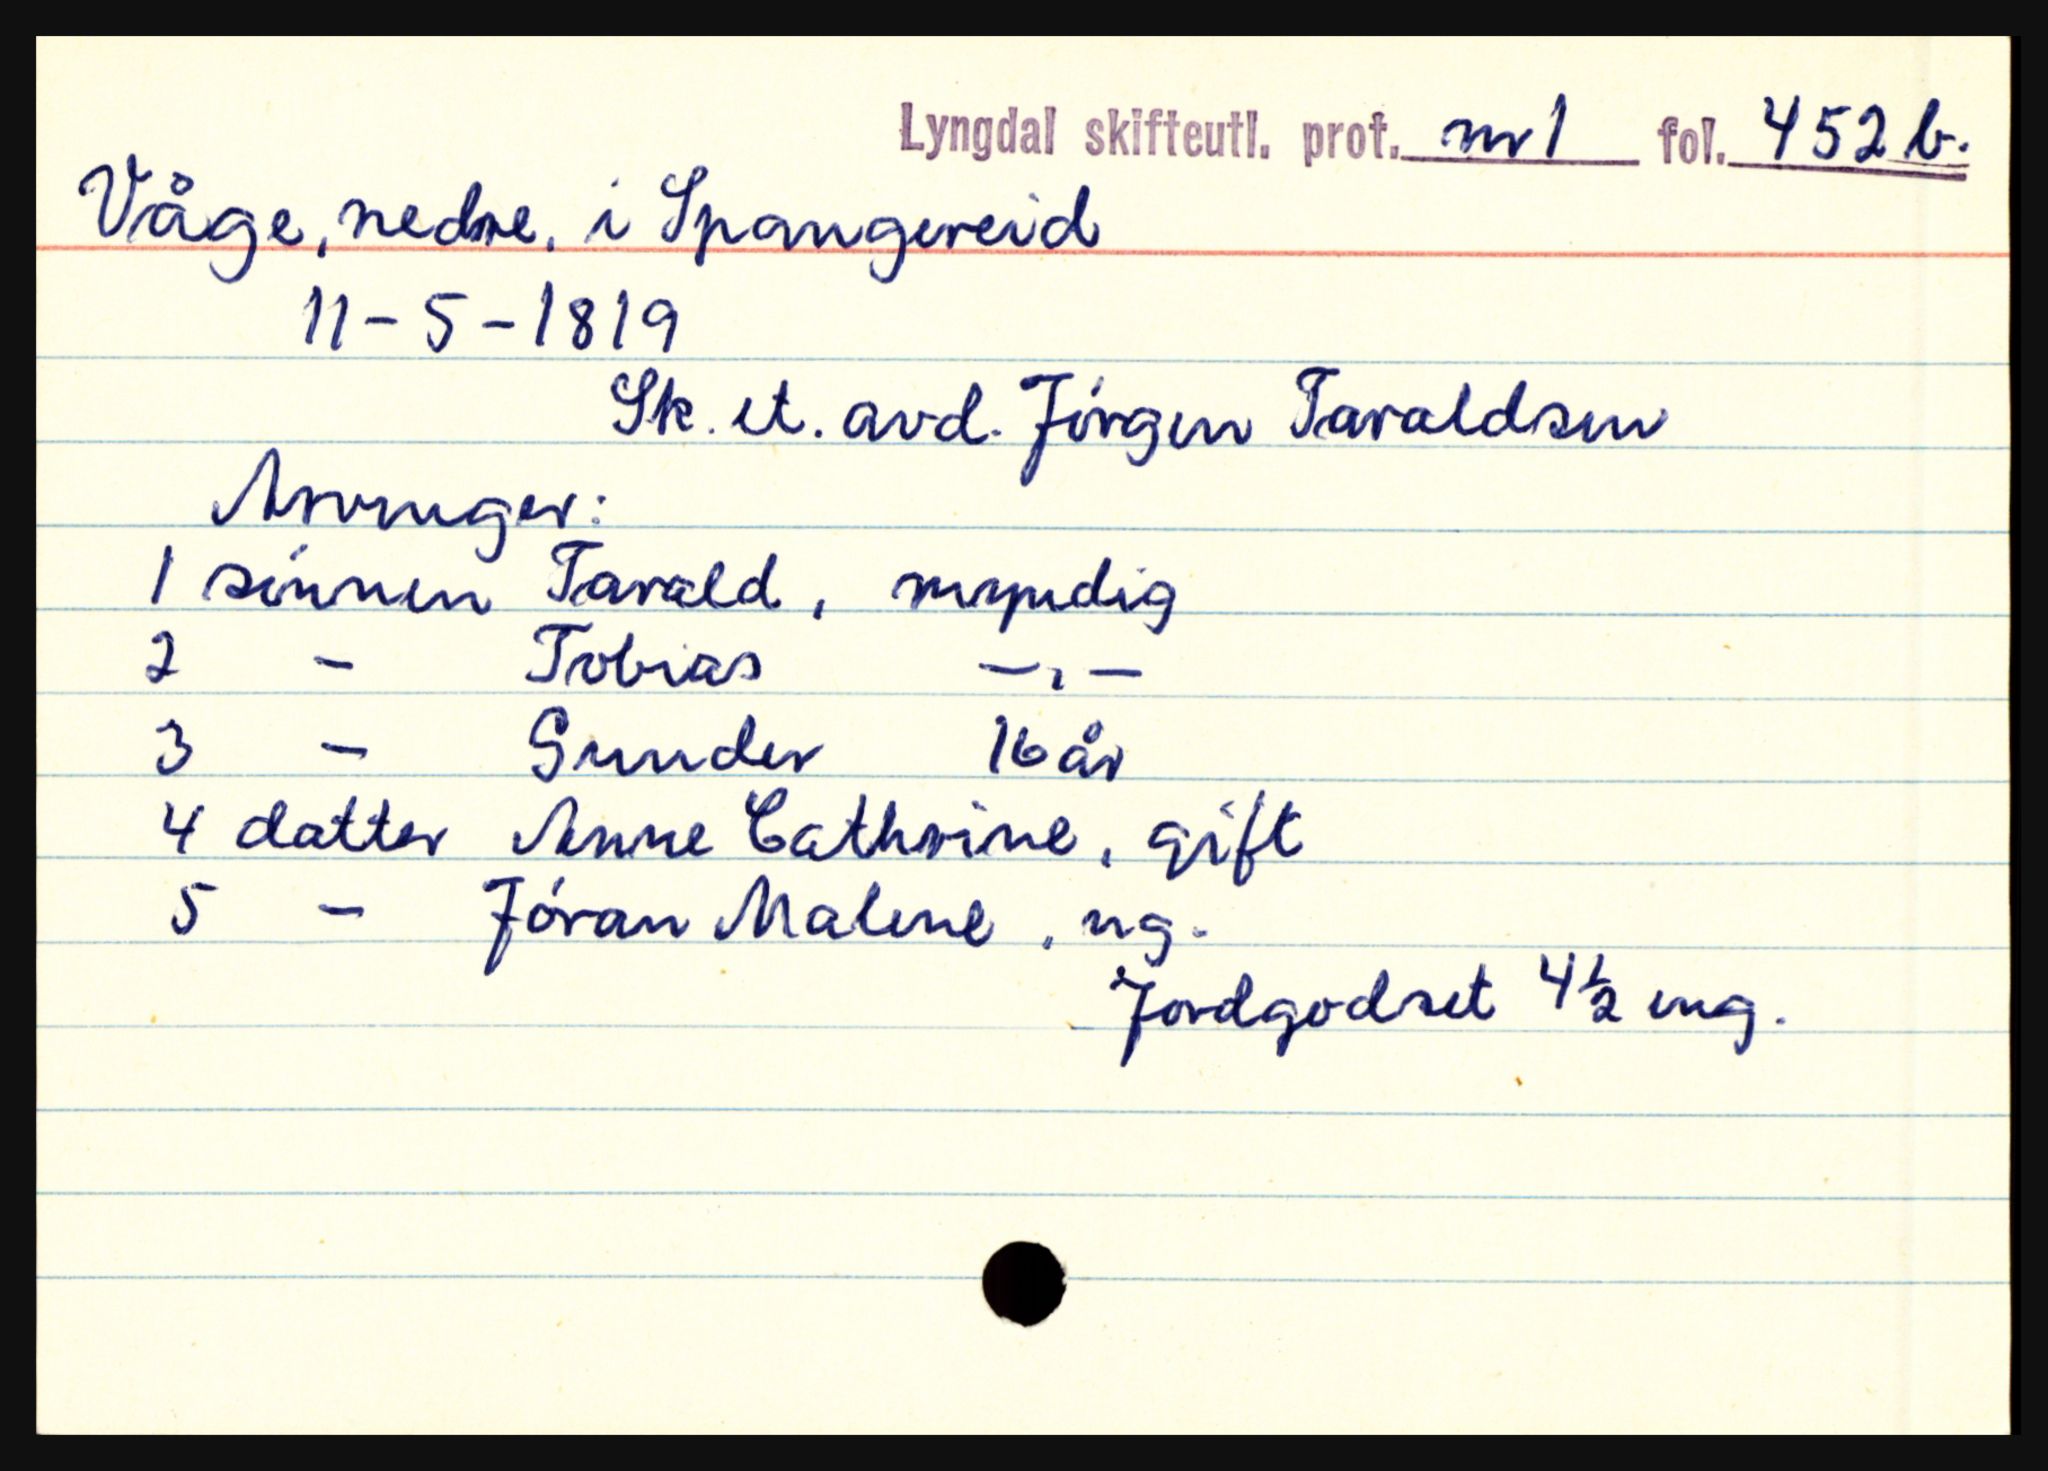 Lyngdal skifteutl. prot. nr 1 fol. 452 b.
Våge, nedre, i Spangereid
11-5-1819
Sk. et. avd. Jörgen Taraldsen
Arvinger:
1 sönnen Tarald, myndig
2 - Tobias -,-
3 - Gunder 16 år
4 datter Anne Cathrine, gift
5 - Jóran Malene, ug.
Jordgodset 4 1/2 eng.